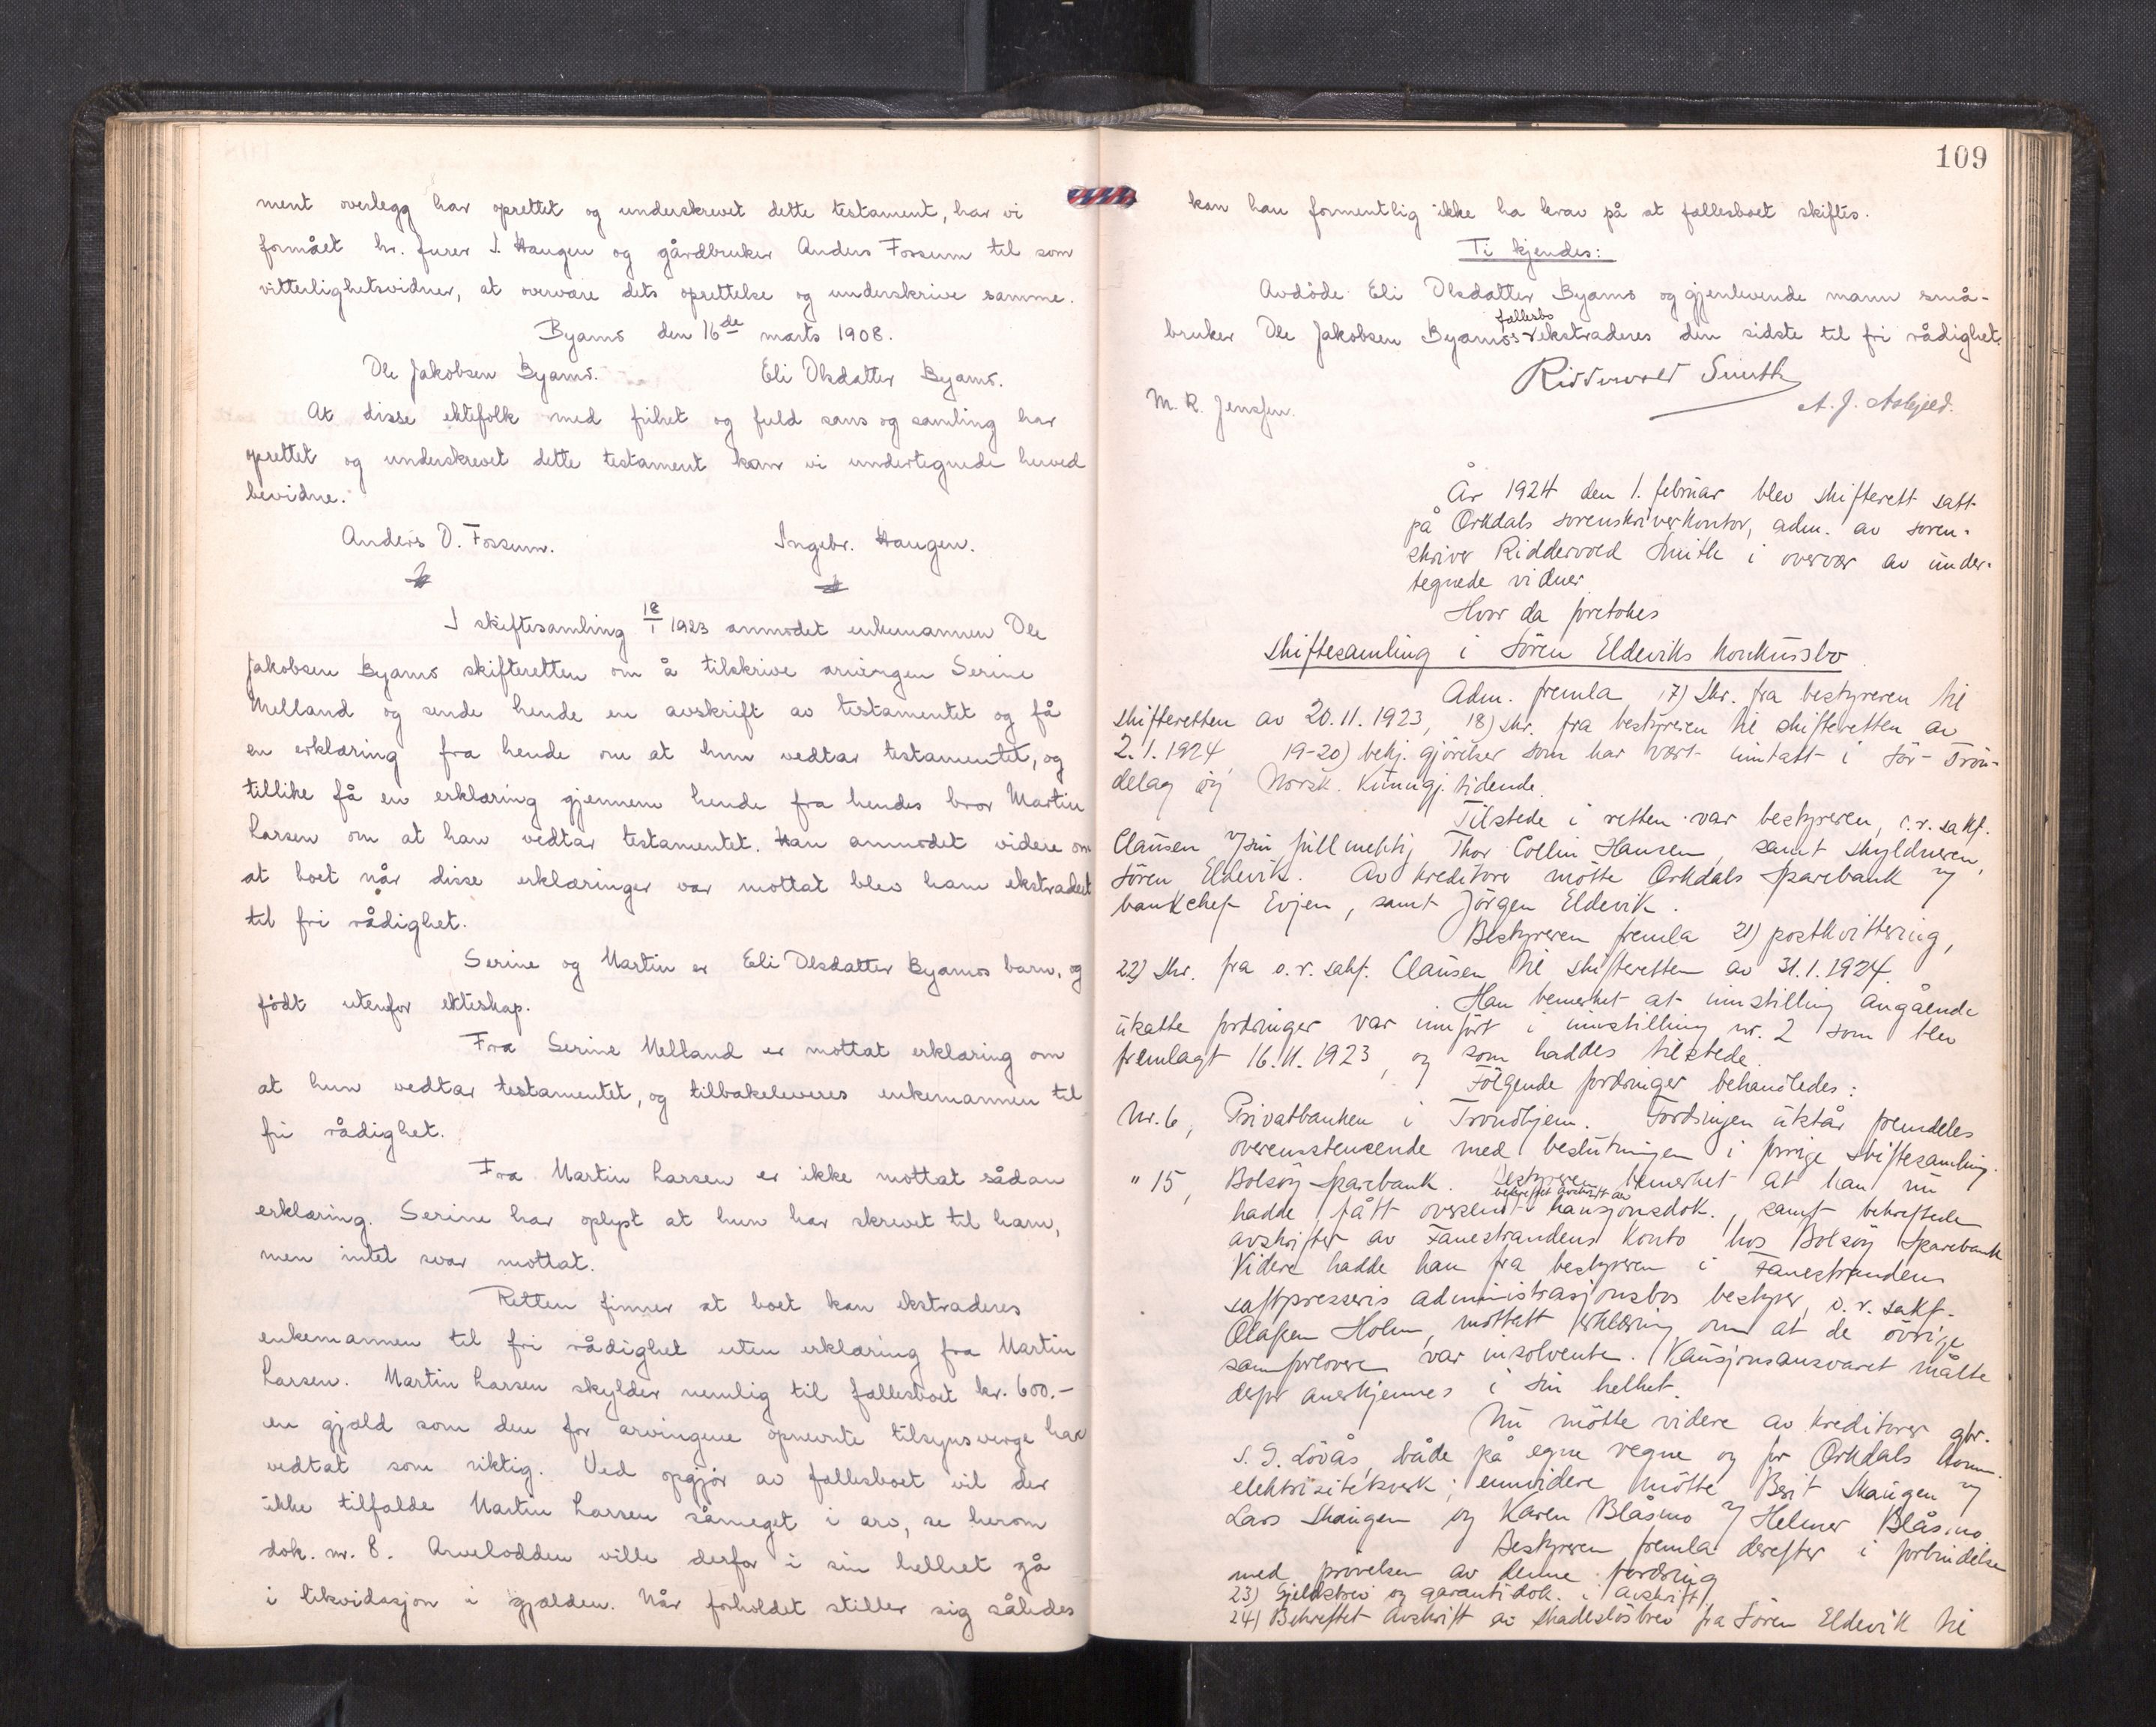 ment overlegg har oprettet og underskrevet dette testament, har vi
formået hr. furer I. Haugen og gårdbruker Anders Fossum til som
vitterlighetsvidner, at overvære dets oprettelse og underskrive samme.
Byams den 16de marts 1908.
Ole Jakobsen Byams. Eli Olsdatter Byams.
At disse ektefolk med frihet og fuld sans og samling har
oprettet og underskrevet dette testament kan vi undertegnede herved
bevidne.
Anders O. Fossum. Ingebr. Haugen.
I skiftesamling 18/1 1923 anmodet enkemannen Ole
Jakobsen Byams skifteretten om å tilskrive arvingen Serine
Melland og sende hende en avskrift av testamentet og få
en erklæring fra hende om at hun vedtar testamentet, og
tillike få en erklæring gjennem hende fra hendes bror Martin
Larsen om at han vedtar testamentet. Han anmodet videre om
at boet når disse erklæringer var mottat blev ham ekstradert
til fri rådighet.
Serine og Martin er Eli Olsdatter Byams barn, og
født utenfor ekteskap.
Fra Serine Melland er mottat erklæring om
at hun vedtar testamentet, og tilbakeleveres enkemannen til
fri rådighet.
Fra Martin Larsen er ikke mottat sådan
erklæring. Serine har oplyst at hun har skrevet til ham,
men intet svar mottat.
Retten finner at boet kan ekstraderes
enkemannen til fri rådighet uten erklæring fra Martin
Larsen. Martin Larsen skylder nemlig til fællesboet kr. 600.-
en gjæld som den for arvingene opnevnte tilsynsverge har
vedtat som riktig. Ved opgjør av fællesboet vil der
ikke tilfalde Martin Larsen såmeget i arv, se herom
dok. nr. 8. Arvelodden ville derfor i sin helhet gå
i likvidasjon i gjælden. Når forholdet stiller sig således
109
kan han formentlig ikke ha krav på at fællesboet skiftes.
Ti kjendes:
Avdöde Eli Olsdatter Byams og gjenlevende mann små-
fællesbo
bruker Ole Jakobsen Byams's ekstraderes den sidste til fri rådighet.
Riddervold Smith
M. R. Jenssen. A. J. Asbjeld.
År 1924 den 1. februar blev skifterett satt
på Orkdals sorenskriverkontor, adm. av soren-
skriver Riddervold Smith i overvær av under-
tegnede vidner
Hvor da foretokes
Skiftesamling i Sören Eldeviks konkursbo.
Adm. fremla 17) Skr. fra bestyreren til
skifteretten av 20.11.1923, 18) skr. fra bestyreren til skifteretten av
2.1.1924, 19-20) bekj.gjörelser som har vært inntatt i Sör-Trön-
delag og Norsk. Kunngj. tidende.
Tilstede i retten var bestyreren, o.r. sakf.
Clausen v/sin fullmektig Thor Collin Hansen, samt skyldneren,
Sören Eldevik. Av kreditorer mötte Orkdals Sparebank v/
bankchef Evjen, samt Jörgen Eldevik.
Bestyreren fremla 21) postkvittering,
22) Skr. fra o.r. sakf. Clausen til skifteretten av 31.1.1924.
Han bemerket at innstilling angående
utsatte fordringer var innfört i innstilling nr. 2 som blev
fremlagt 16.11.1923, og som haddes tilstede.
Fölgende fordringer behandledes:
Nr. 6, Privatbanken i Trondhjem. Fordringen utstår fremdeles
overensstemmende med beslutningen i forrige skiftesamling.
" 15, Bolsöy Sparebank. Bestyreren bemerket at han nu
bekreftet avskrift av
hadde fått oversendt kausjonsdok., samt bekreftede
avskrifter av Fanestrandens konto hos Bolsöy Sparebank
Videre hadde han fra bestyreren i Fanestrandens
saftpresseris administrasjonsbos bestyrer, o.r. sakf.
Olafsen Holm, mottatt erklæring om at de övrige
samforlovere var insolvente. Kausjonsansvaret måtte
derfor anerkjennes i sin helhet.
Nu mötte videre av kreditorer gbr.
S. S. Lövås, både på egne vegne og for Orkdals komm.
elektrisitetsverk; ennvidere mötte Berit Skaugen v/
Lars Skaugen og Karen Blåsmo v/ Helmer Blåsmo.
Bestyreren fremla derefter i forbindelse
med prövelsen av denne fordring
23) Gjeldsbrev og garantidok. i avskrift.
24) Bekreftet avskrift av skadeslösbrev fra Sören Eldevik til